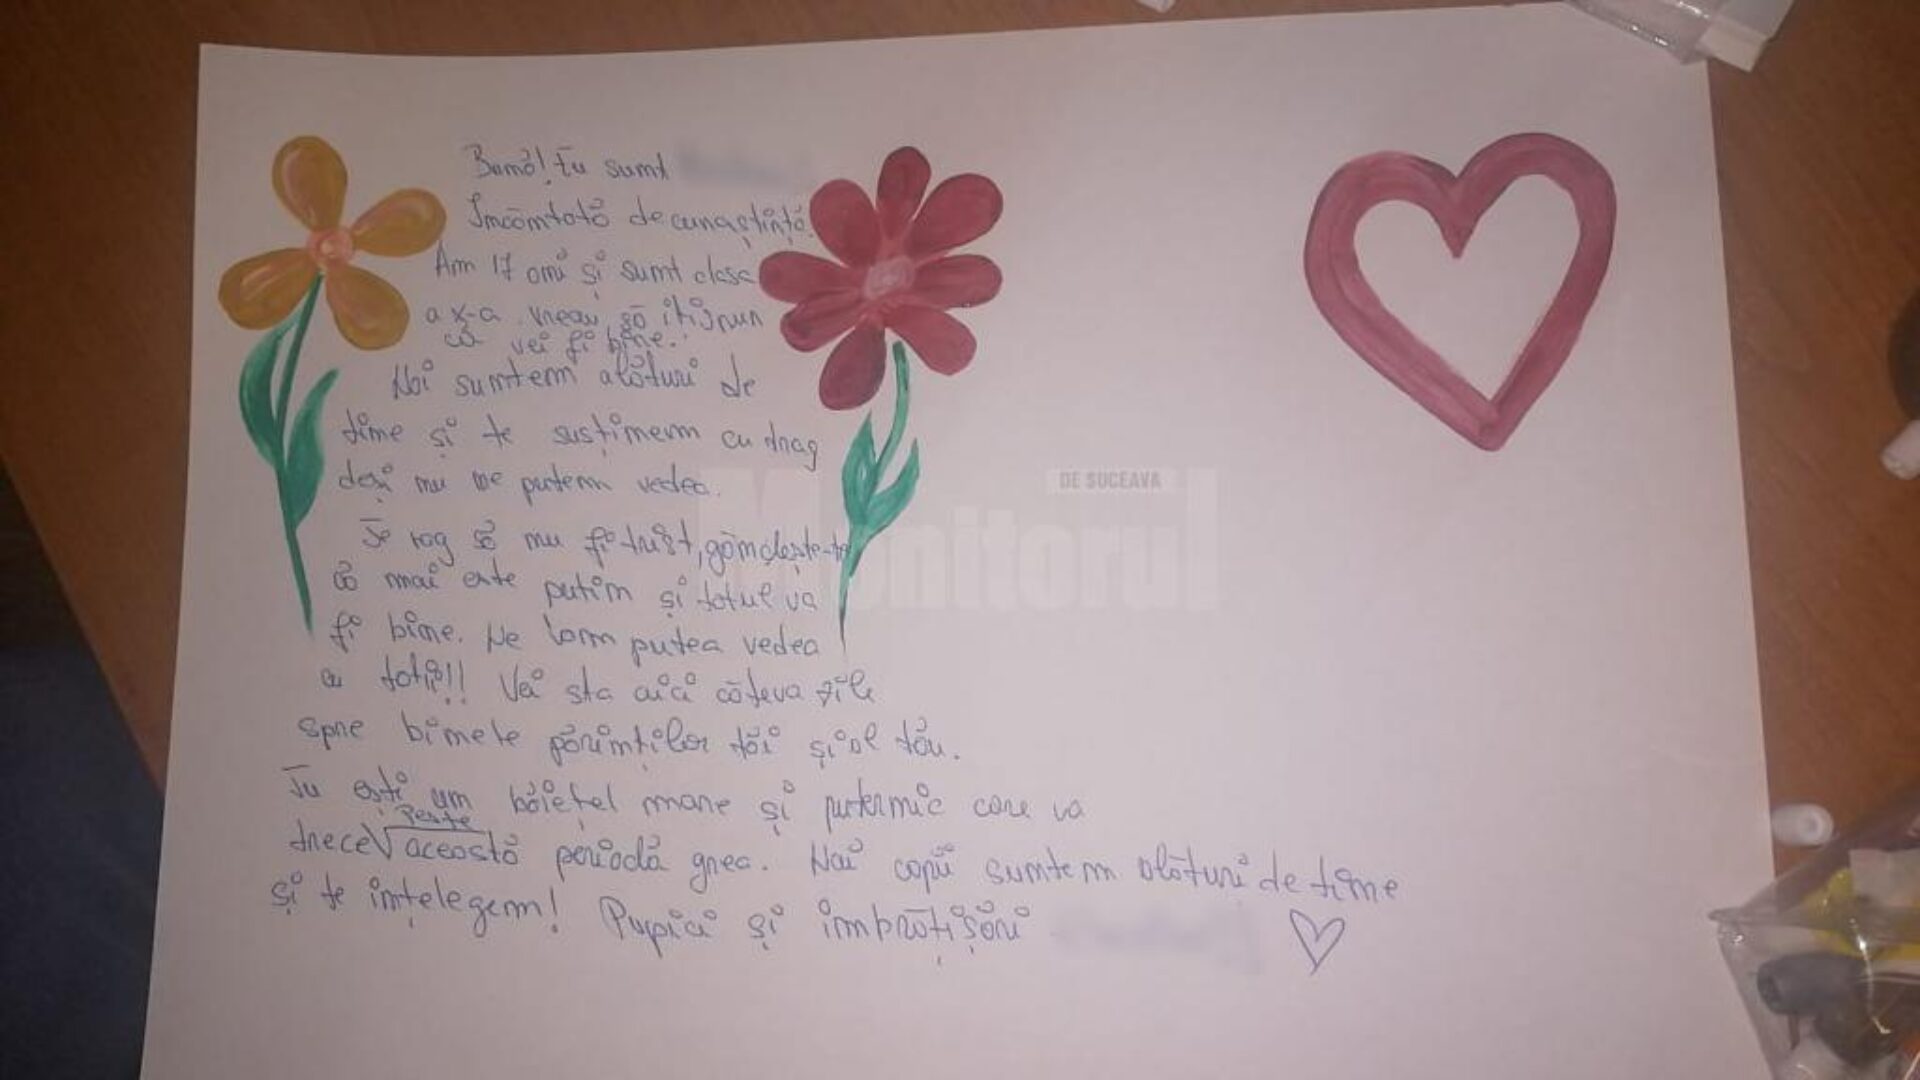 Bună! Eu sunt
Încântată de cunaștință.
Am 17 ani și sunt clasa
a X-a. Vreau să iti spun
că vei fi bine.
Noi suntem alături de
tine și te susținem cu drag
deși nu ne putem vedea.
Te rog să nu fi trist, gândește-te
că mai este putin și totul va
fi bine. Ne vom putea vedea
cu toții!! Vei sta aici câteva zile
spre binele părinților tăi și al tău.
Tu ești un băiețel mare și puternic care va
peste
trece această perioadă grea. Noi copii suntem alături de tine
și te ințelegem! Pupici și imbrățișări
DE SUCEAVA
Monitorul